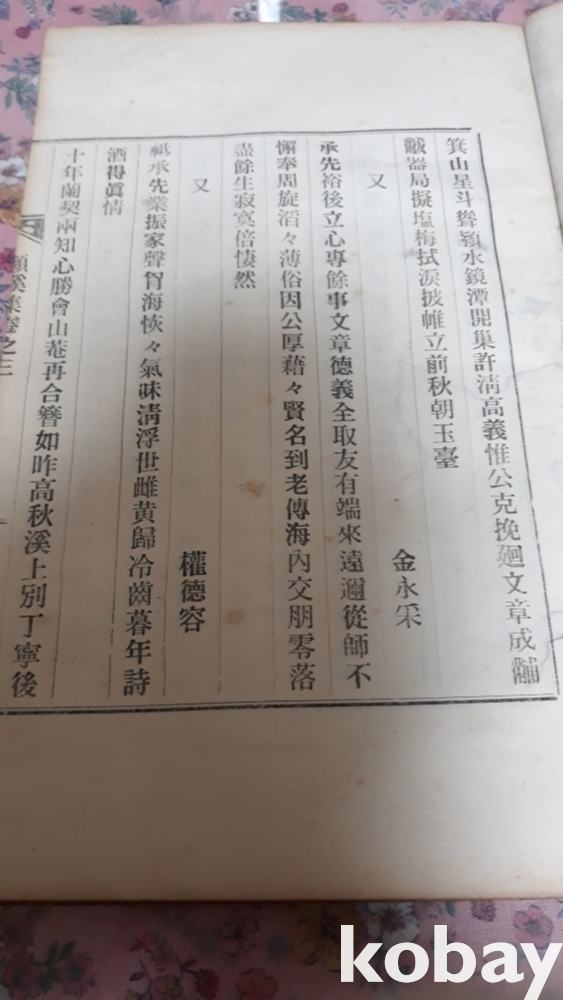 箕山星斗聳潁水鏡潭開巢許淸高義惟公克挽廻文章成黼
黻器局擬塩梅拭淚披帷立前秋朝玉臺
又
金永采
承先裕後立心專餘事文章德義全取友有端來遠邇從師不
懈奉周旋滔々薄俗因公厚藉々賢名到老傳海內交朋零落
盡餘生寂寞倍悽然
又
權德容
祗承先業振家聲胷海恢々氣味淸浮世雌黃歸冷齒暮年詩
酒得眞情
十年蘭契兩知心勝會山菴再合簪如昨高秋溪上別丁寧後
溪集卷之三
kobay